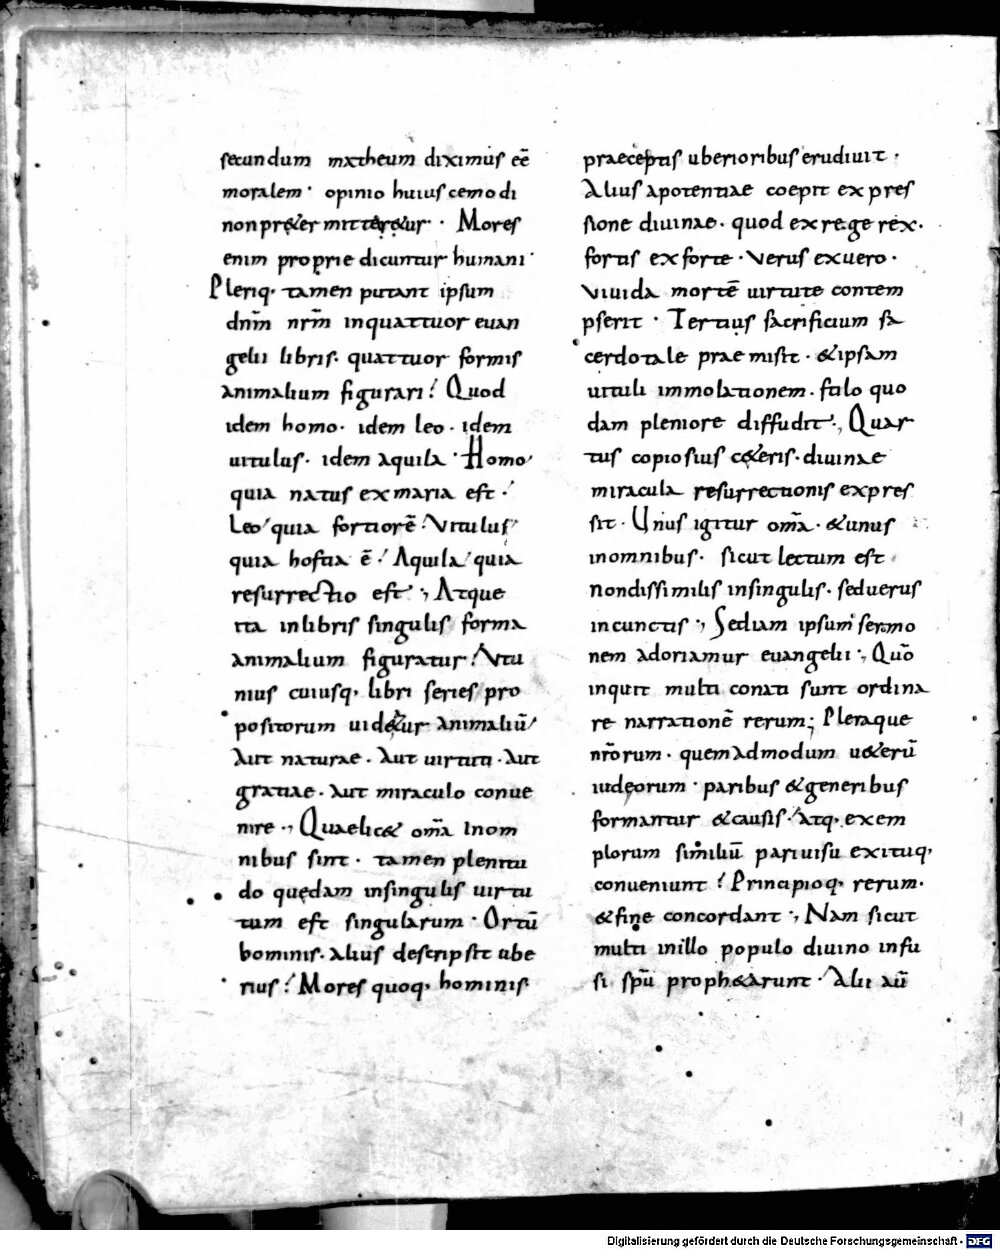 secundum matheum diximus eē
moralem · opinio huius cemodi
non pr&er mitter&ur · Mores
enim proprie dicuntur humani ·
Pleriq· tamen putant ipsum
dnm̄ nrm̄ inquattuor euan
gelii libris · quattuor formis
animalium figurari : Quod
idem homo · idem leo · idem
uitulus · idem aquila · Homo
quia natus ex maria est ·
Leo quia fortiorē : Vitulus
quia hostia ē : Aquila quia
resurrectio est ·, Atque
ita inlibris singulis forma
animalium figuratur : Vtu
nius cuiusq, libri series pro
positorum uid&ur animaliū
Aut naturae · Aut uirtuti · Aut
gratiae · Aut miraculo conue
nire ·, Quaelic& om̄a Inom
nibus sint · tamen plenitu
do quędam insingulis uirtu
tum est singularum · Ortū
hominis · Alius descripsit ube
rius : Mores quoq, hominis
praeceptis uberioribus erudiuit ·
Alius apotentiae coepit ex pres
sione diuinae · quod ex rege rex ·
fortis ex forte · Verus exuero ·
Viuida mortē uirtute contem
pserit · Tertius sacrificium sa
cerdotale prae misit · &ipsam
uituli immolationem · stilo quo
dam pleniore diffudit ·, Quar
tus copiosius c&eris · diuinae
miracula resurrectionis expres
sit · Unus igitur om̄a · &unus
inomnibus · sicut lectum est
nondissimilis insingulis · seduerus
incunctis ·, Sediam ipsum sermo
nem adoriamur euangelii ·, Quō
inquit multi conati sunt ordina
re narrationē rerum ; Pleraque
nrōrum · quemadmodum u&erū
iudęorum · paribus &generibus
formantur &causis · Atq, exem
plorum similiū pariuisu exituq,
conueniunt : Principioq, rerum ·
&fine concordant ·, Nam sicut
multi inillo populo diuino infu
si spū proph&arunt · Alii aū
Digitalisierung gefördert durch die Deutsche Forschungsgemeinschaft - DFG